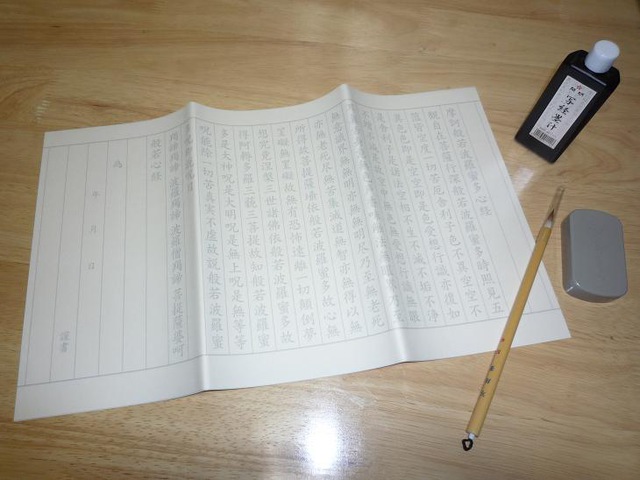 摩訶般若波羅蜜多心経
観自在菩薩行深般若波羅蜜多時照見五
蘊皆空度一切苦厄舎利子色不異空空不
異色色即是空空即是色受想行識亦復如
是舎利子是諸法空相不生不滅不垢不浄
不増不減是故空中無色無受想行識無眼
無意識界無無明亦無無明尽乃至無老死
亦無老死尽無苦集滅道無智亦無得以無
所得故菩提薩埵依般若波羅蜜多故心無
罣礙無罣礙故無有恐怖遠離一切顛倒夢
想究竟涅槃三世諸佛依般若波羅蜜多故
得阿耨多羅三藐三菩提故知般若波羅蜜
多是大神呪是大明呪是無上呪是無等等
呪能除一切苦真実不虚故説般若波羅蜜
羯諦羯諦 波羅羯諦 波羅僧羯諦 菩提薩婆訶
般若心経
為
年 月 日
謹書
写経墨汁